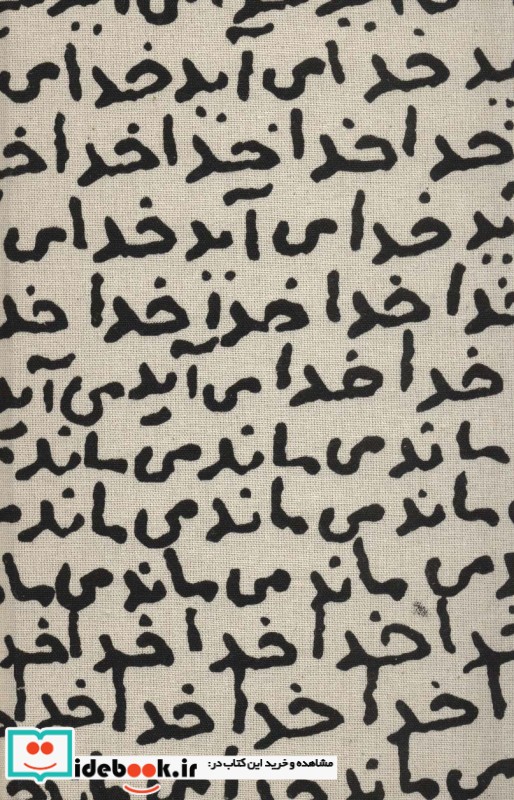 ید خدای آید خدای
خدا خدا خدا خدا خد
ید خدای آید خدای
خدا خدا خدا خد
خدا خدا ی آید ی آید
ماند می ماند می ماند
ماند می ماند می ماند
ی ماند می ماند می ما
خدا خدا خدا خد
خدا خدا خدا خدا
مشاهده و خرید این کتاب در:
idebook.ir